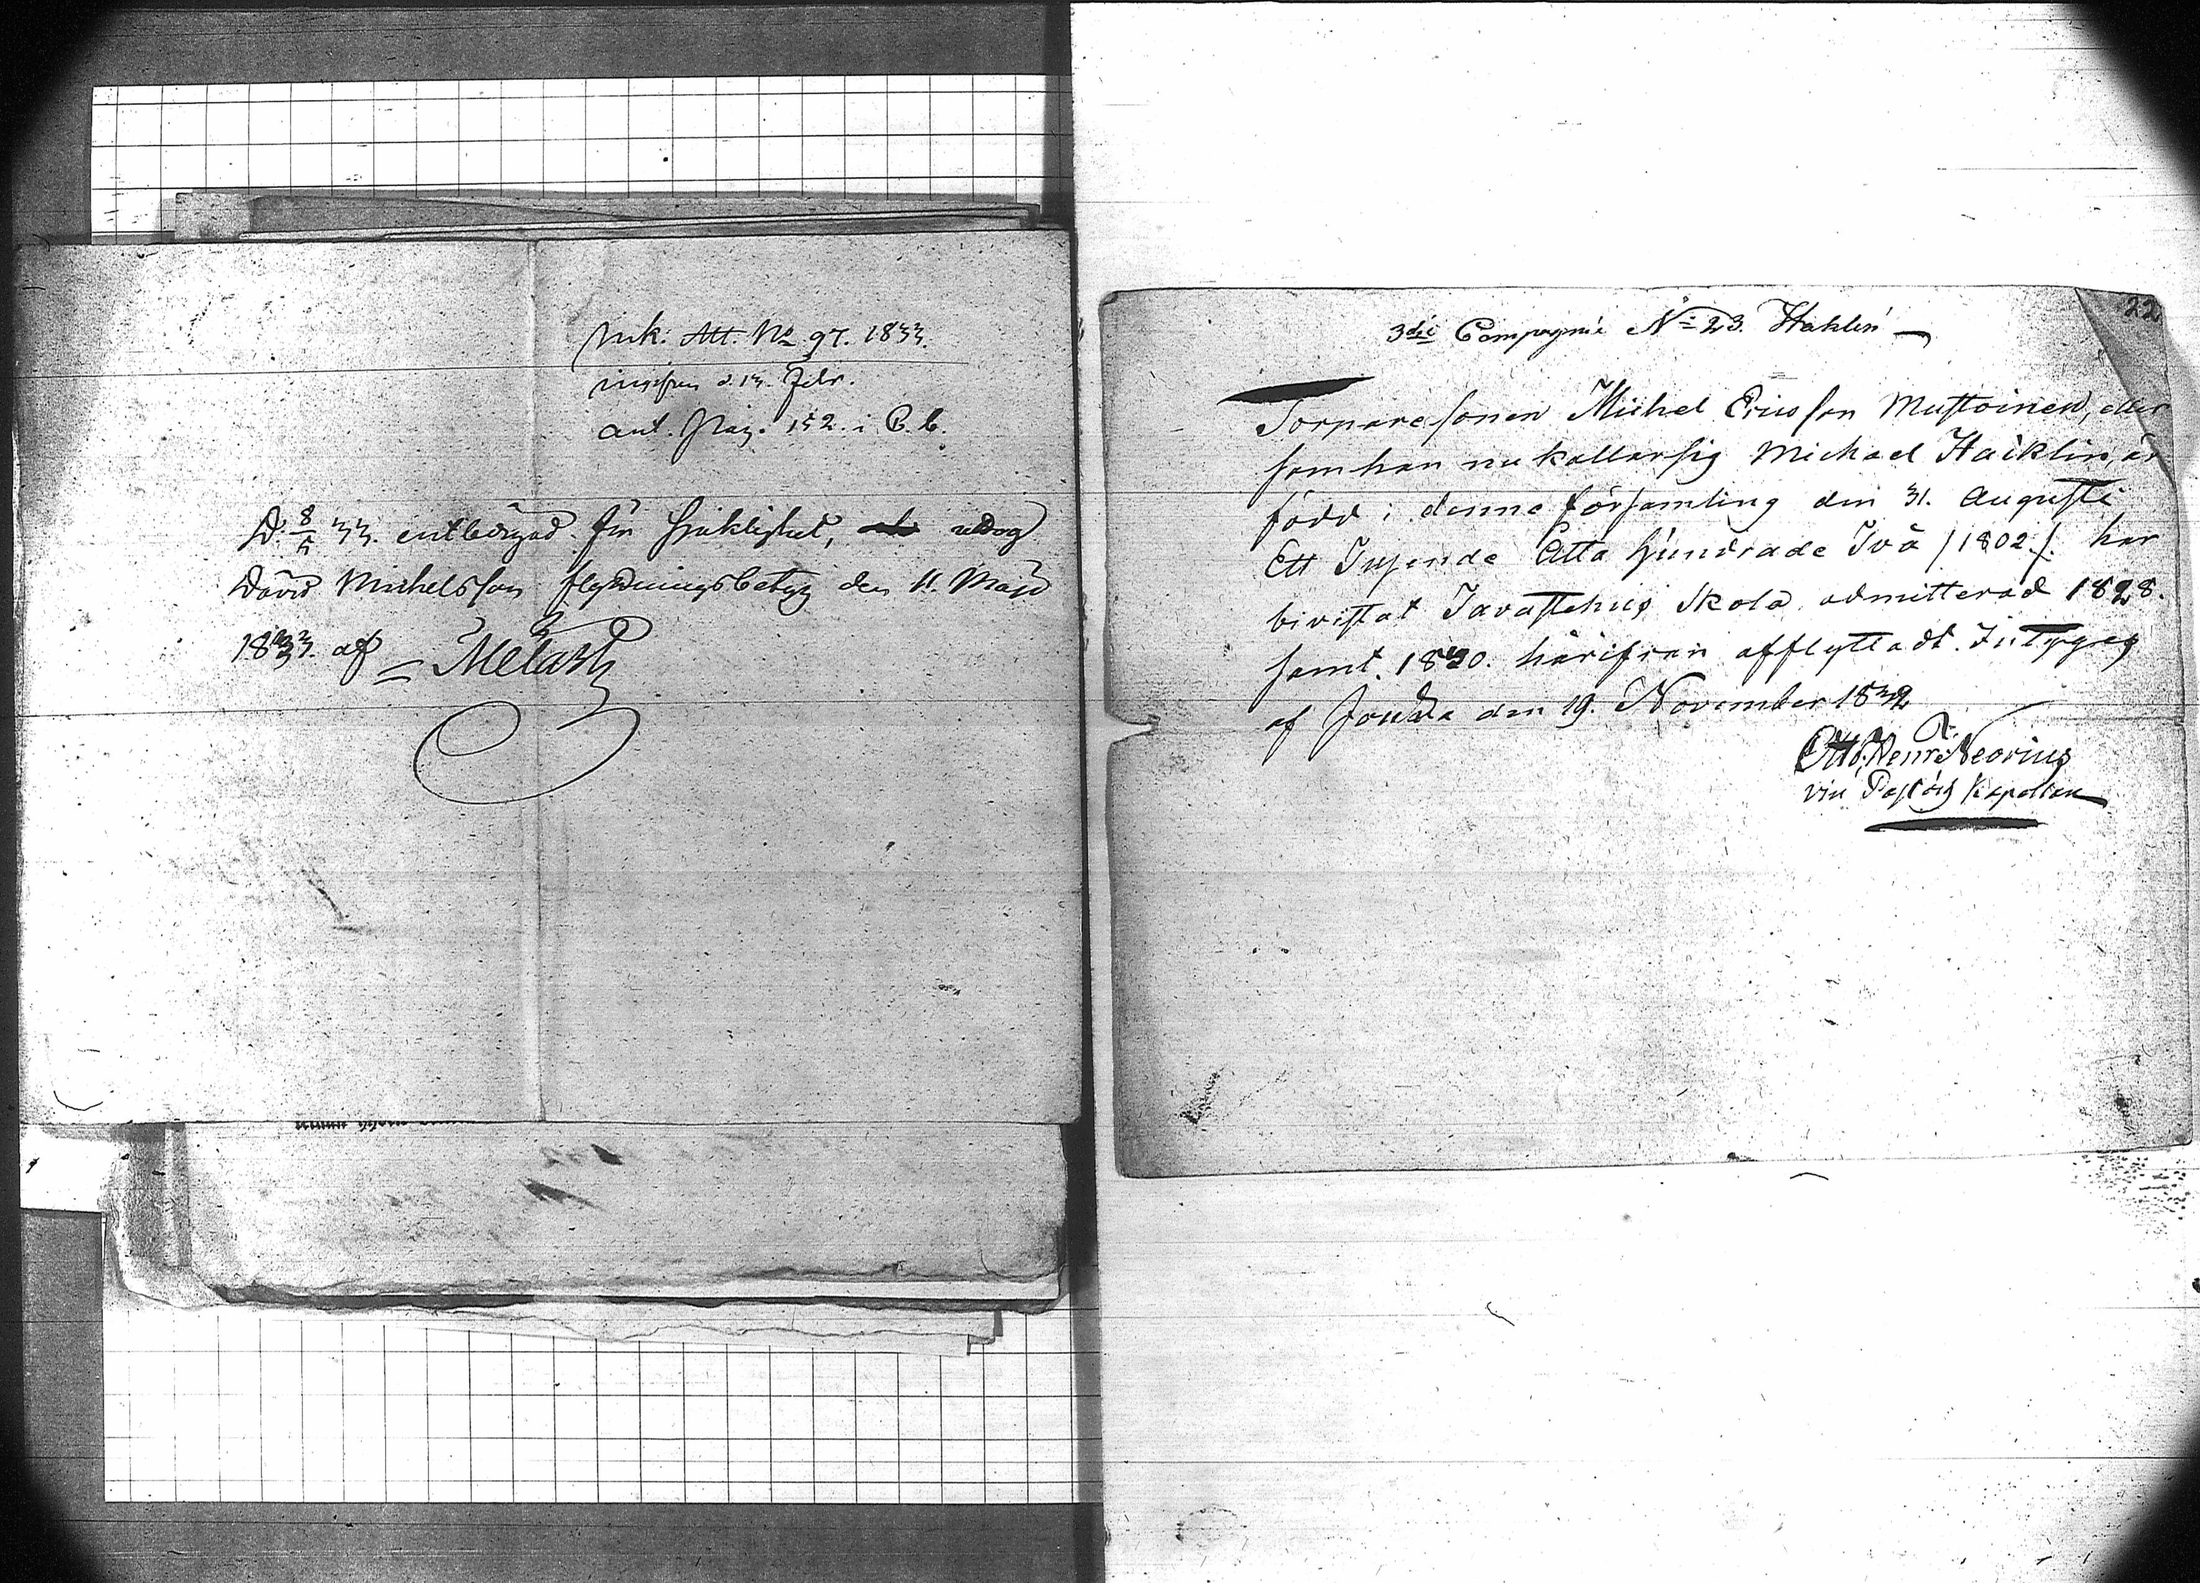 Ink: Att. No 97. 1833.
d. 13. Febr.
ant. Pag. 152. i C. b.
D. 8/5 33. entledigad för sjuklighet, uttog
David Michelsson flyttningsbetyg den 11. Maji
1833. af Melart
22
3die Compagnie N:o 23. Haklin
Torparesonen Michel Ericsson Mustoinen, eller
som han nu kallar sig Michael Haiklin, är
född i denna församling den 31. Augusti
Ett Tusende Åtta Hundrade Två /1802/. har
bivistat Tavastehus Skola admitterad 1828.
samt. 1830. härifrån afflyttadt. Intygas
af Jorois den 19. November 1832
Otto Henr: Neovius
vice Pastors Kapellan